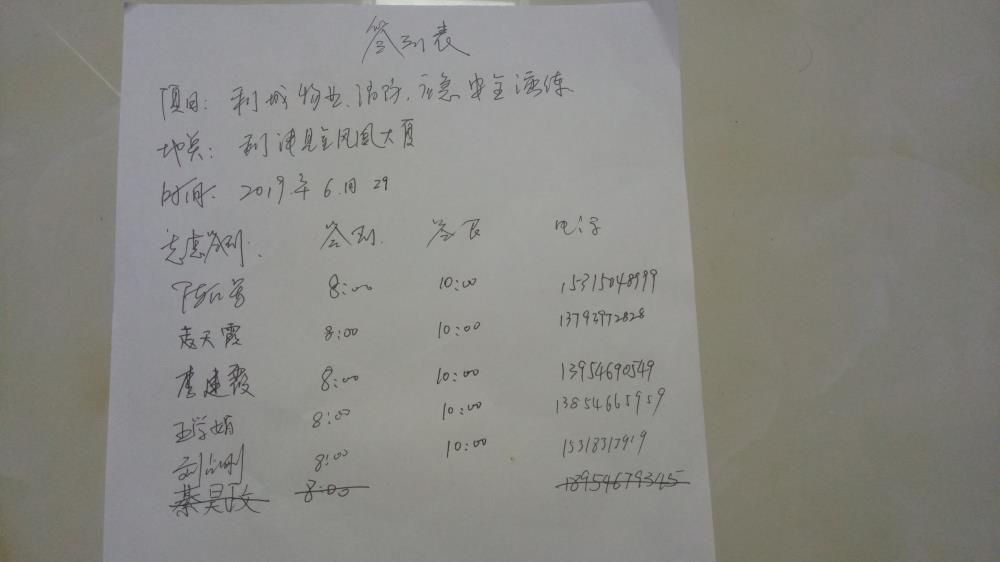 签到表
项目: 利城物业、消防、应急安全演练
地点: 利津县金凤凰大厦
时间: 2019年6月29
志愿签到. 签到. 签 电话
8:00 10:00 15315048999
袁天霞 8:00 10:00 13793972828
李建霞 8:00 10:00 13954690549
王学娟 8:00 10:00 13854665959
刘 8:00 10:00 15318317919
綦昊政 8:00 18954679345